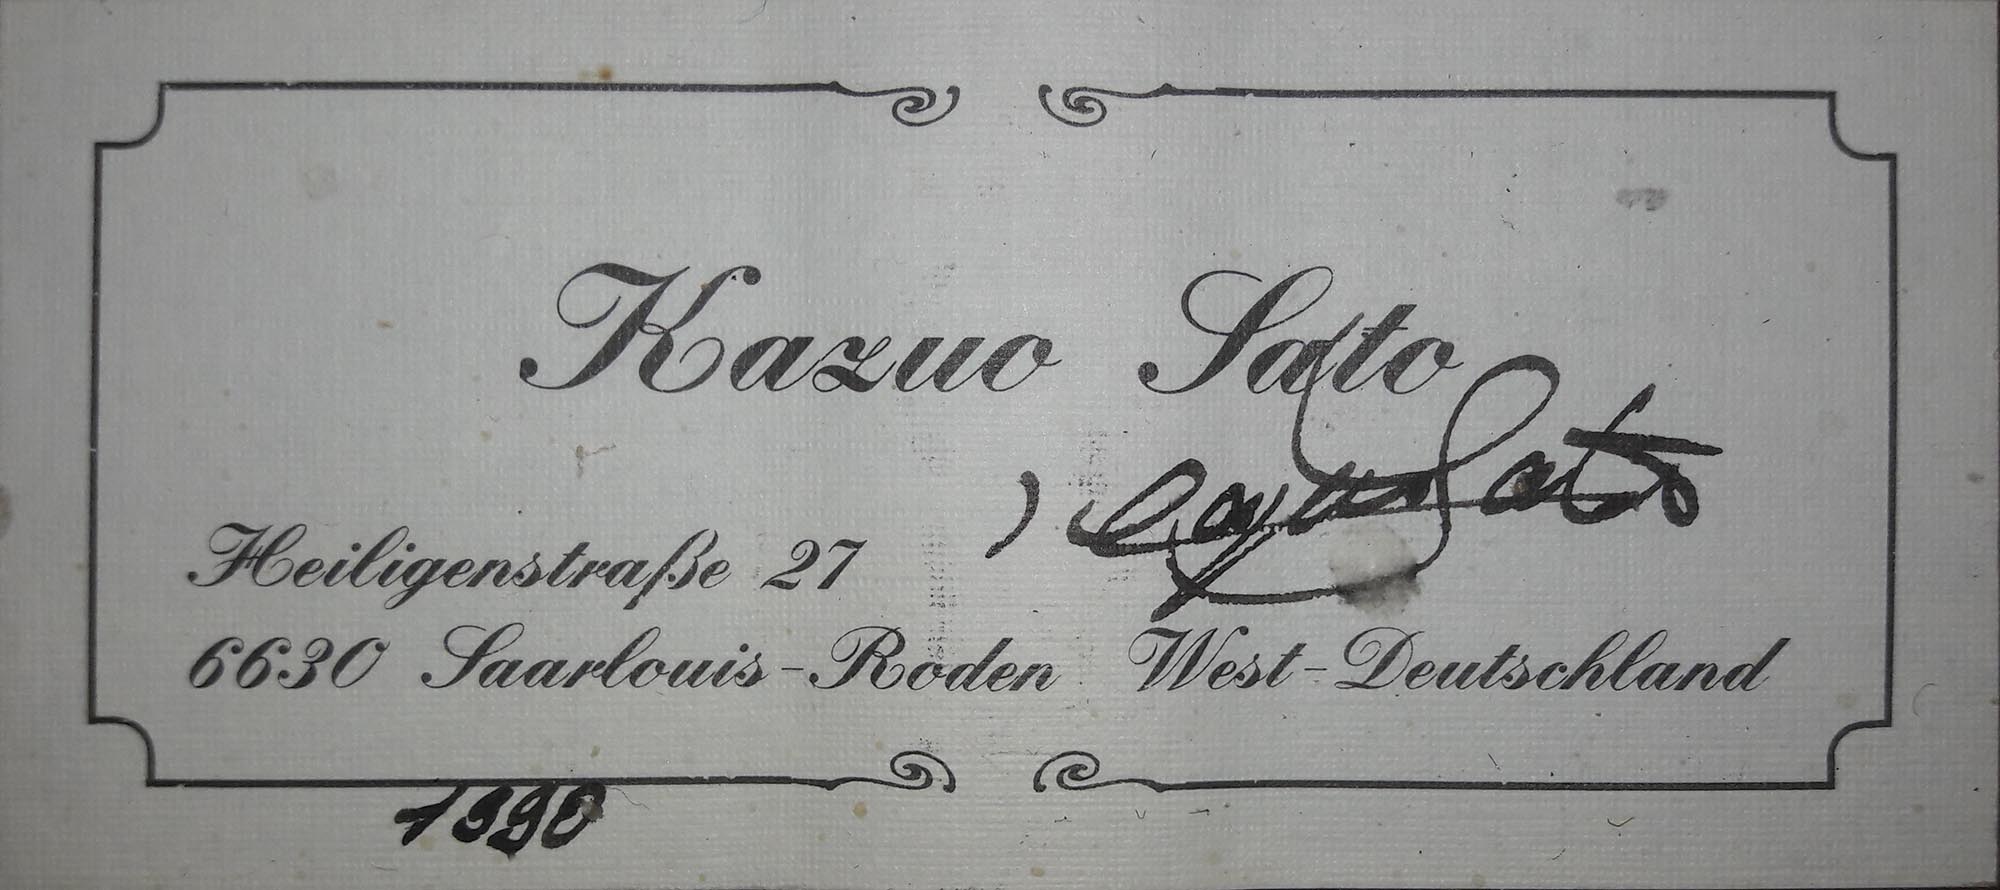 Kazuo Sato
Kazuo Sato
Heiligenstraße 27
6630 Saarlouis-Roden West-Deutschland
1990